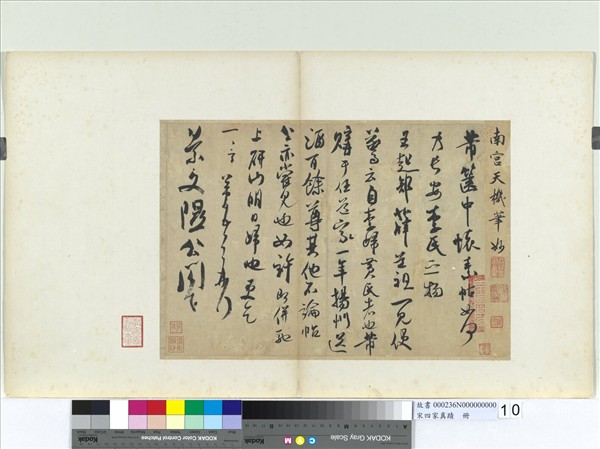 南宮天機筆妙
芾篋中懷素帖如何
乃長安李氏之物
王起部薛道祖一見便
驚云自李歸黃氏者也芾
購于任道家一年揚州送
酒百餘尊其他不論帖
公亦嘗見也如許即併馳
上研山明日歸也更乞
一言芾頓首再拜
景文隰公閣下
故書 000236N000000000
宋四家真蹟 冊
10
Kodak
KODAK Color Control Patches
Kodak
C Y M
KODAK Gray Scale